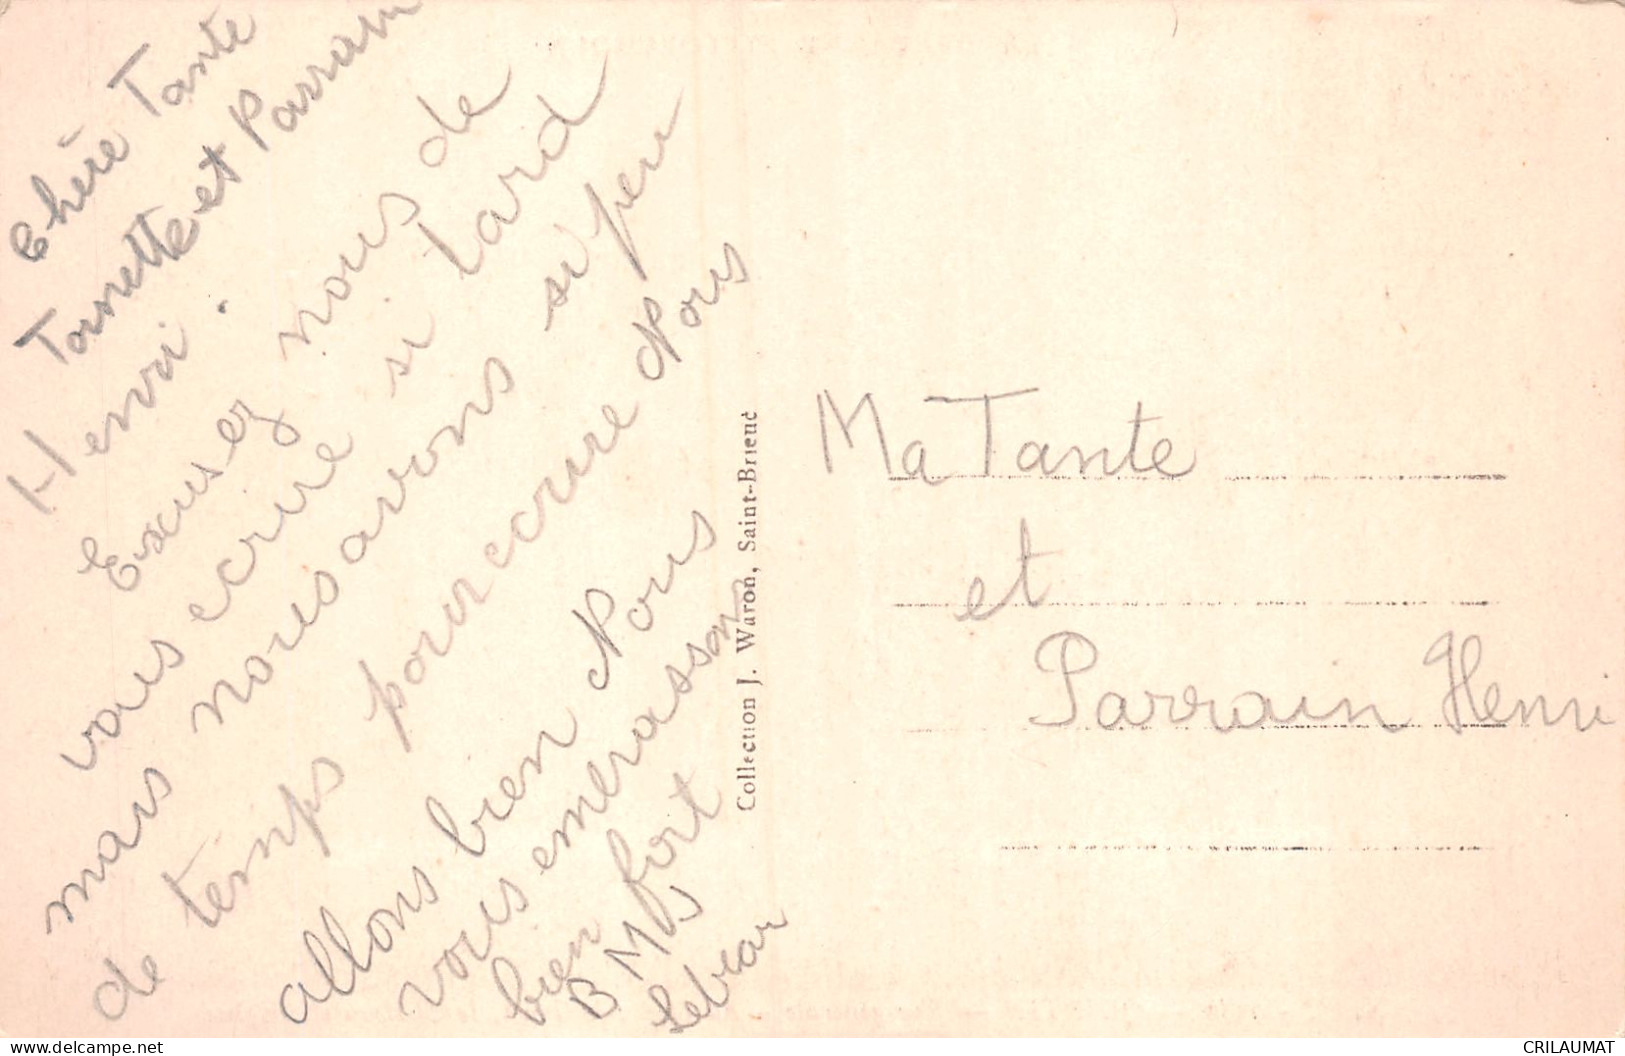 Chère Tante
Tonette et Parrain
Henri.
Excusez nous de
vous ecrire si tard
mais nous avons si peu
de temps pour ecrire Nous
allons bien Nous
vous embrasson
bien fort
B M J
Collection J. Waron, Saint-Brieuc
Ma Tante
et
Parrain Henri
CRILAUMAT